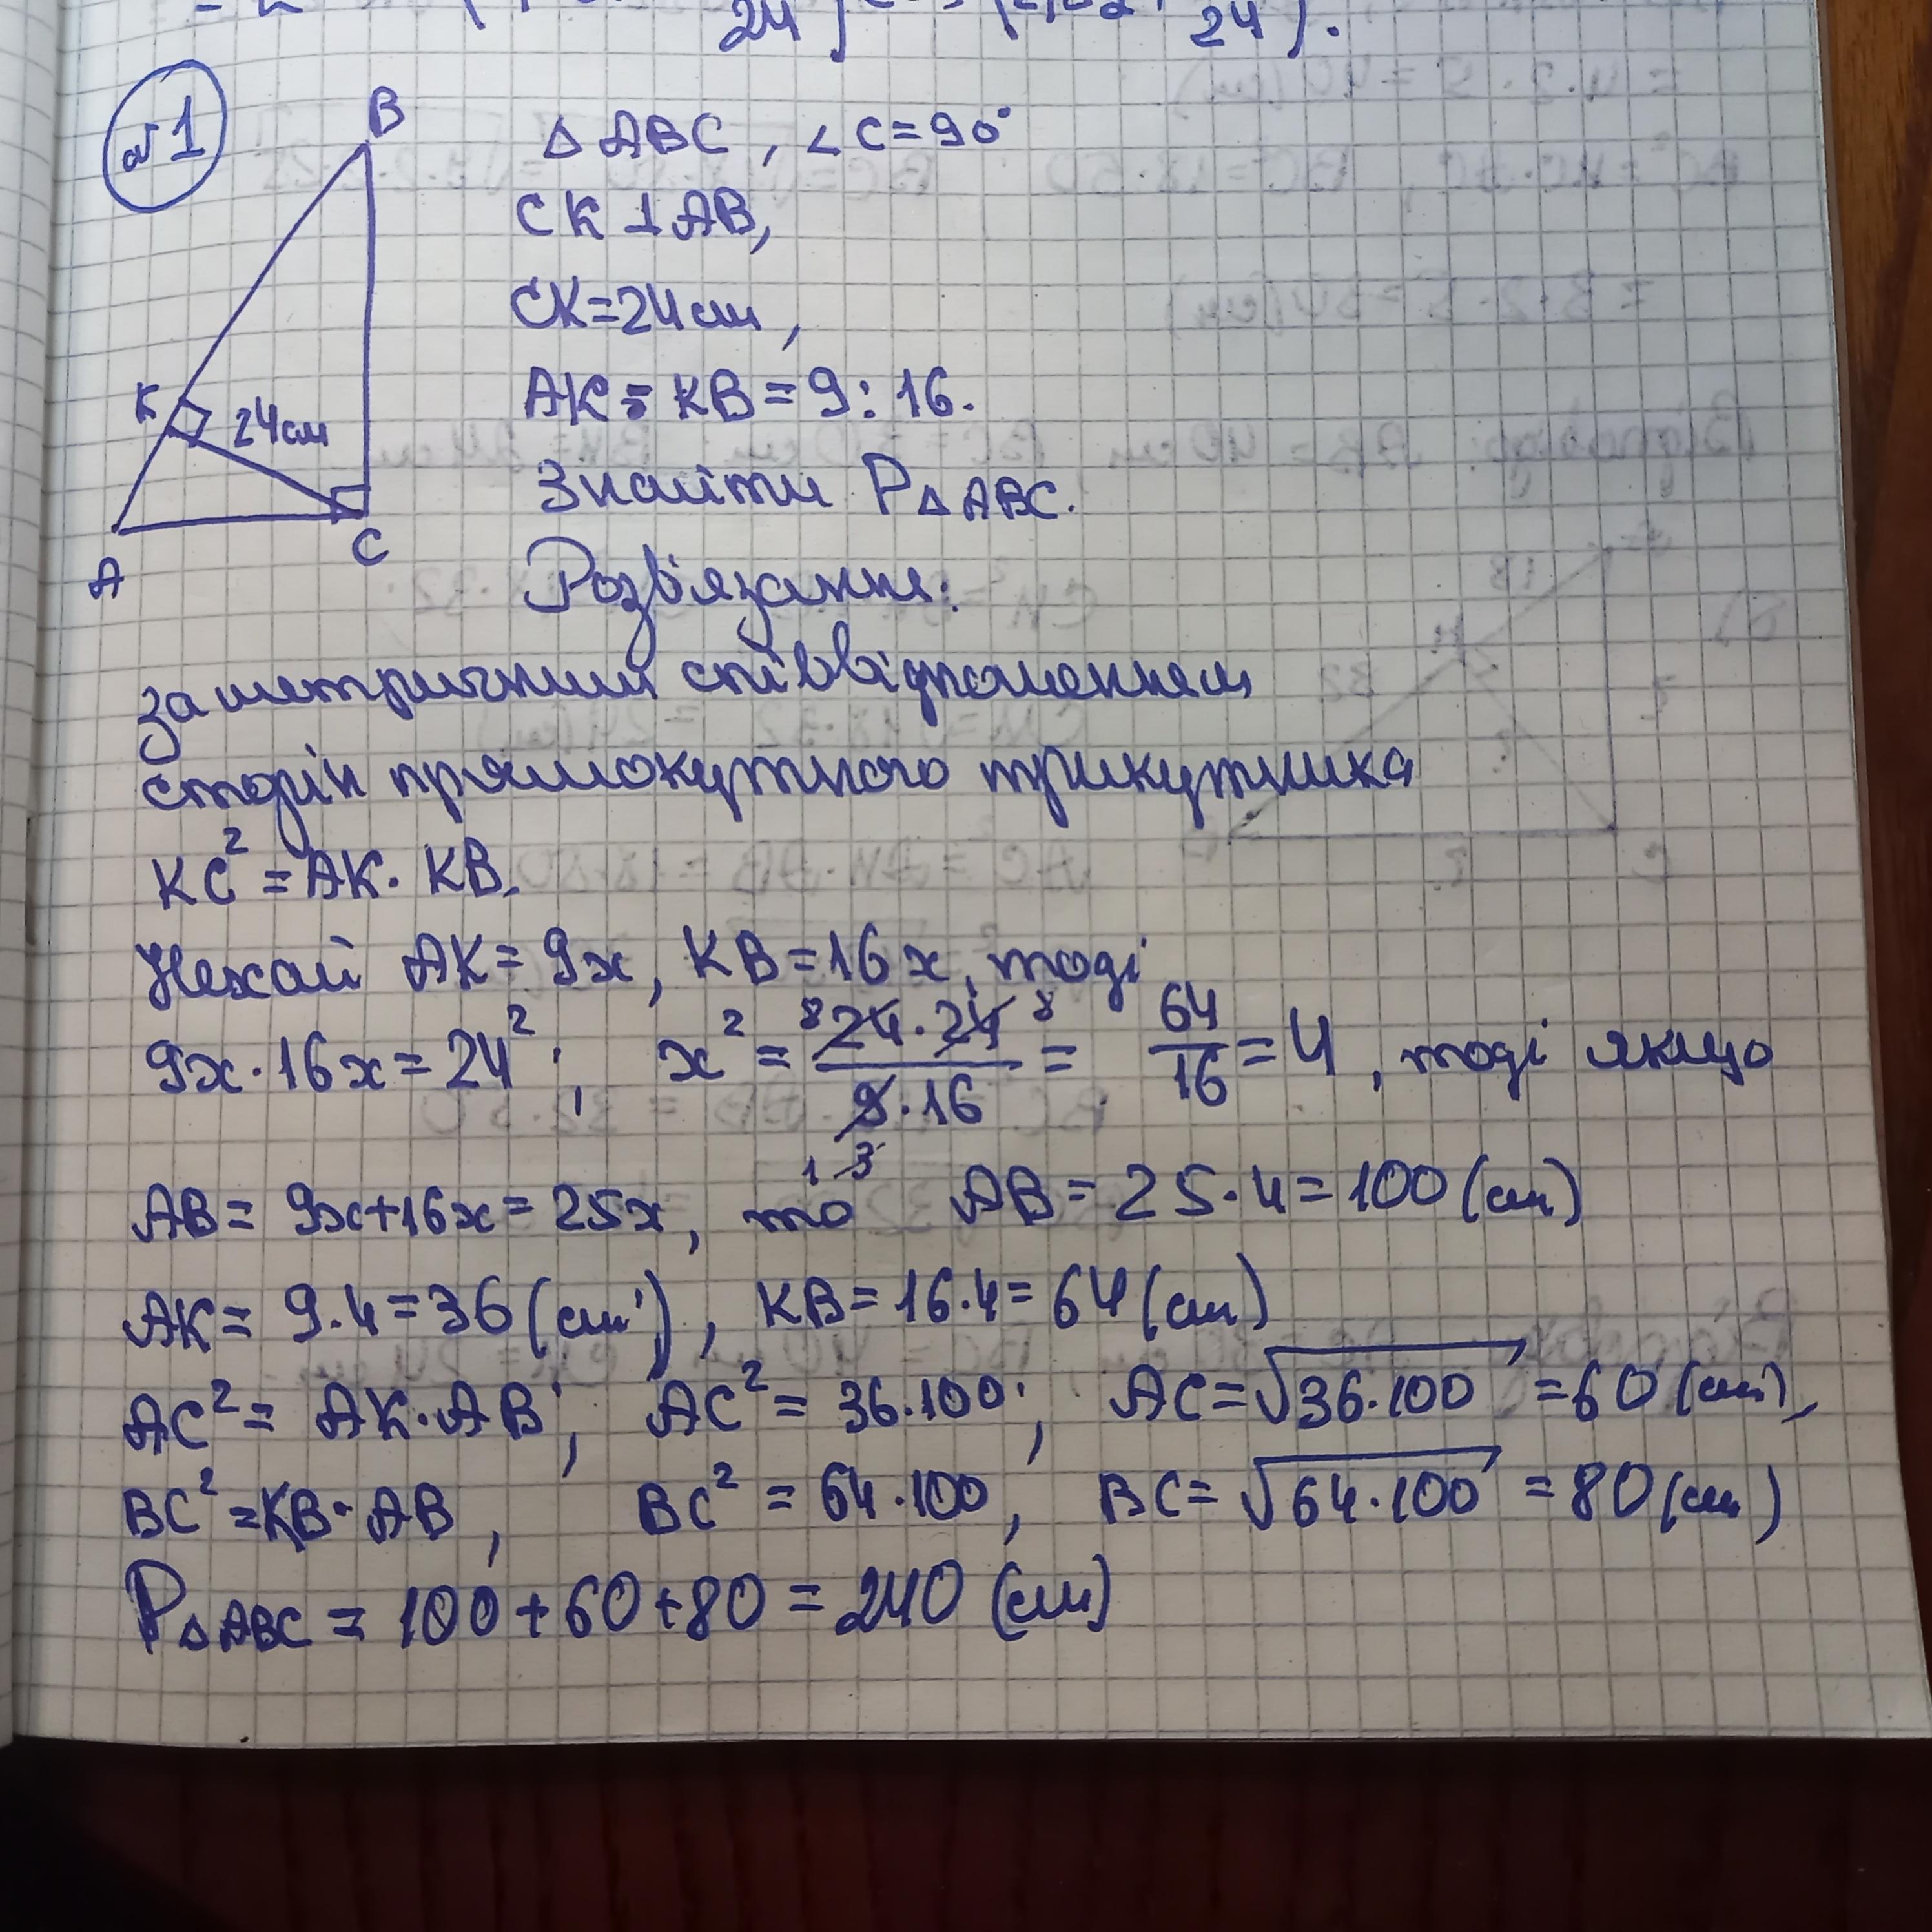 24 24
№1
B
Δ ABC, ∠C=90°
CK⊥AB,
CK=24см,
AK : KB = 9:16.
K 24см
Знайти P△ABC.
A C
Розв'язання:
за метричним співвідношенням
сторін прямокутного трикутника
KC² = AK · KB.
Нехай AK = 9x, KB = 16x, тоді
9x · 16x = 24²; x² = 8 24 · 24 8 / 9 · 16 = 64/16 = 4, тоді якщо
1 3
AB = 9x+16x = 25x, то AB = 25·4 = 100 (см)
AK = 9·4 = 36 (см), KB = 16·4 = 64 (см)
AC² = AK·AB; AC² = 36·100; AC = √36·100 = 60 (см),
BC² = KB·AB, BC² = 64·100, BC = √64·100 = 80 (см)
P△ABC = 100+60+80 = 240 (см)